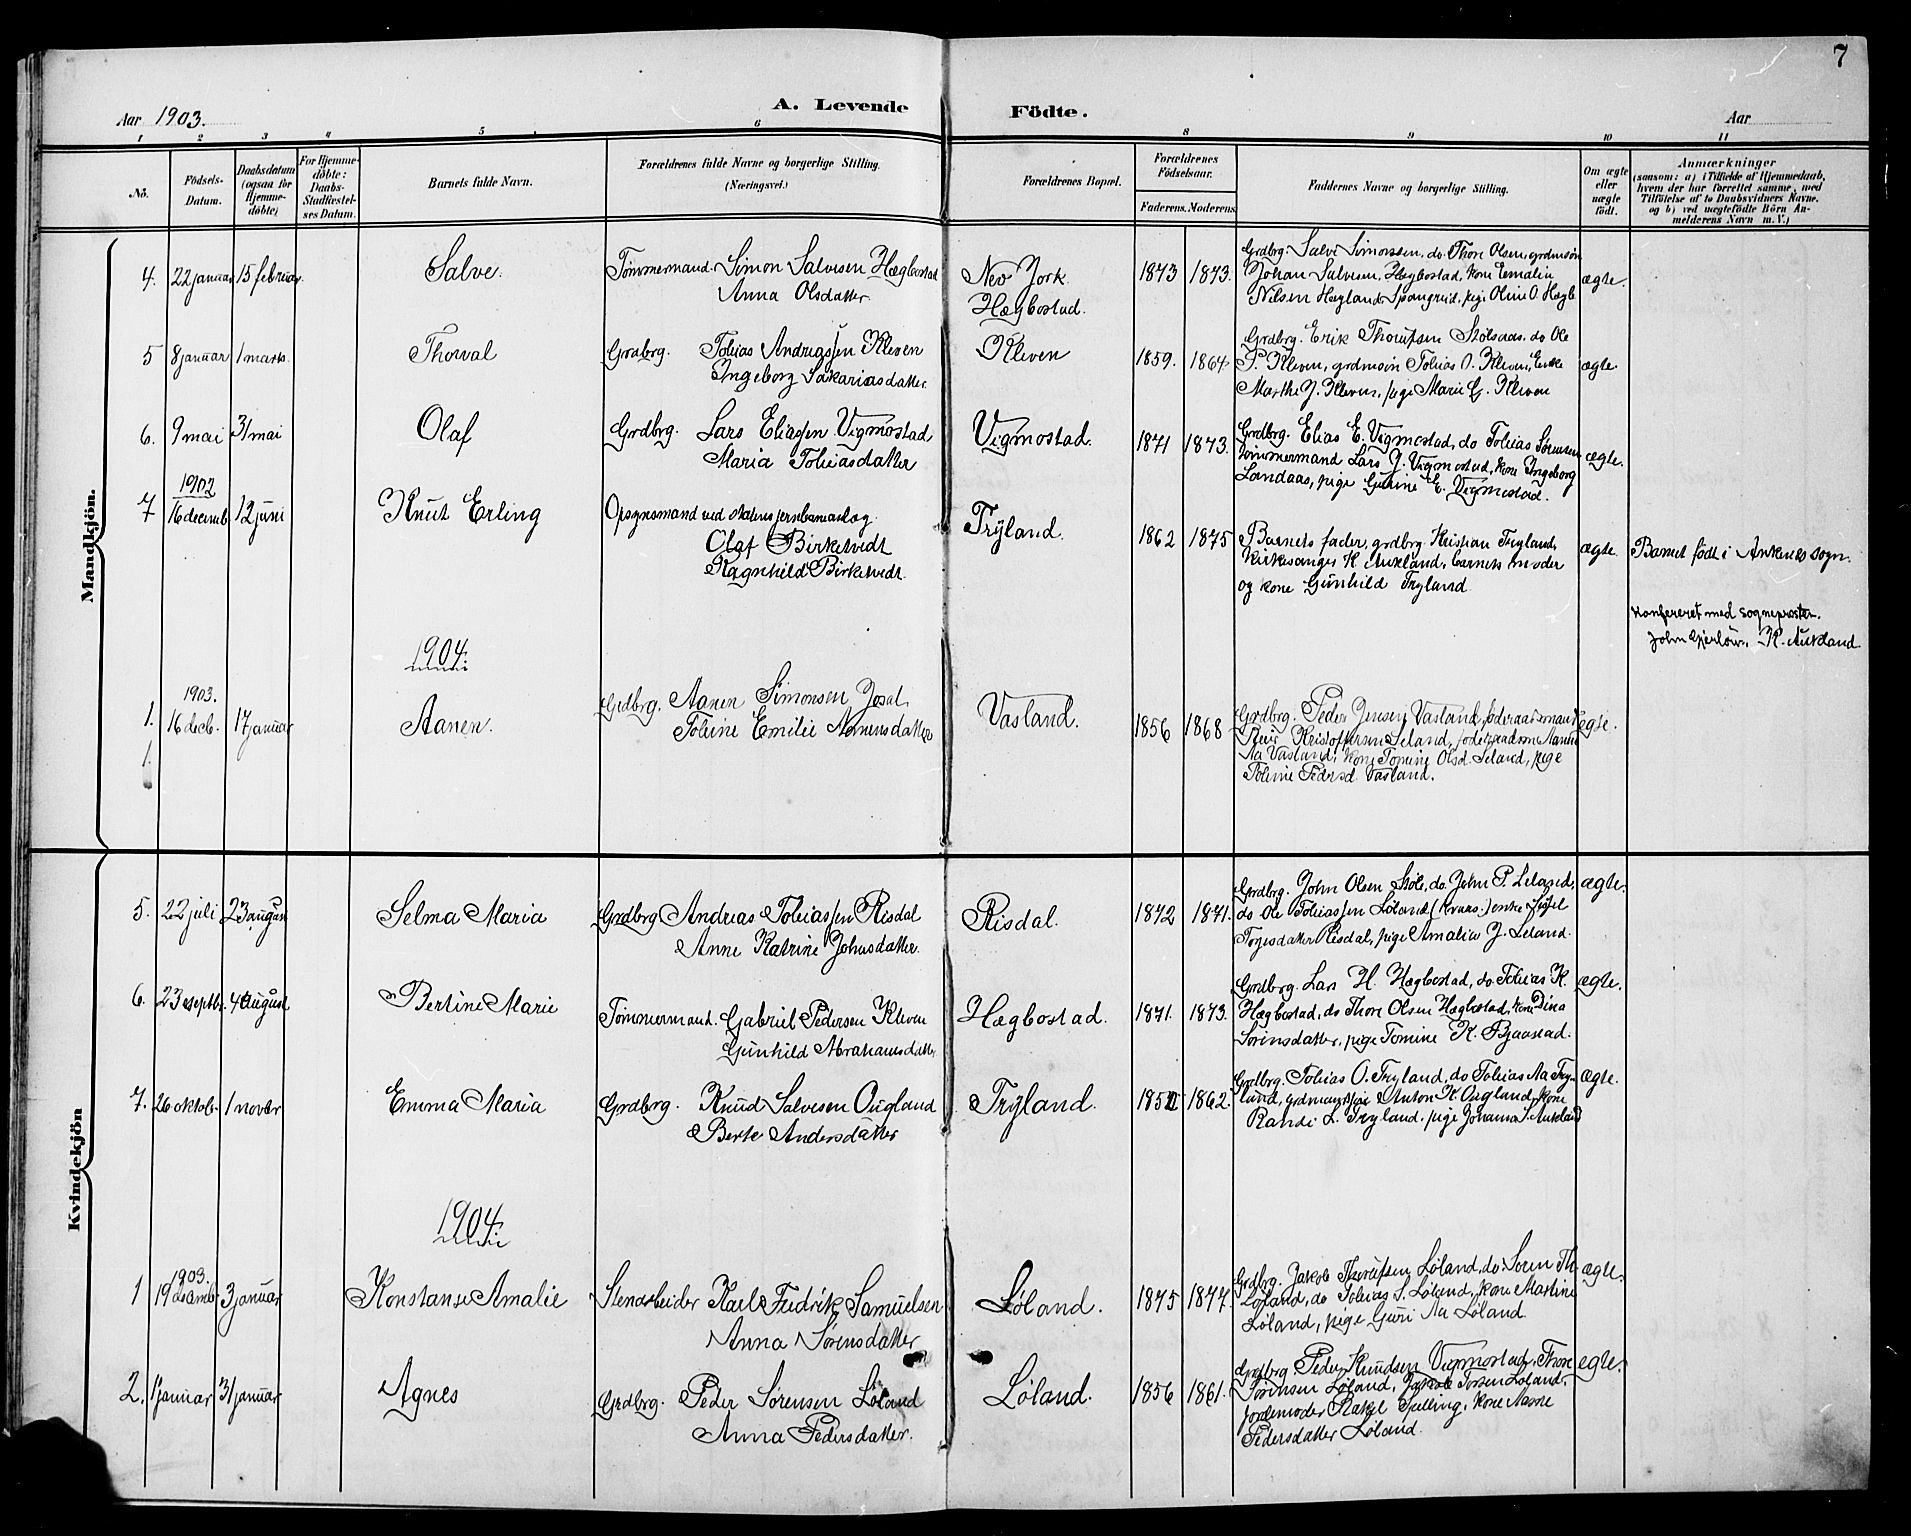 7
Aar 1903. A. Levende Födte. Aar
1 2 3 4 5 6 8 9 10 11
No.
Födsels-
Datum.
Daabsdatum
(ogsaa for
Hjemme-
døbte)
For Hjemme-
døbte:
Daabs-
Stadfæstel-
ses Datum.
Barnets fulde Navn.
Forældrenes fulde Navne og borgerlige Stilling.
(Næringsvei.)
Forældrenes Bopæl.
Forældrenes
Födselsaar.
Faderens. Moderens.
Faddernes Navne og borgerlige Stilling.
Om ægte
eller
uægte
født.
Anmærkninger
(saasom: a) i Tilfælde af Hjemmedaab,
hvem der har forrettet samme, med
Tilföielse af to Daabsvidners Navne.
og b) ved uægtefödte Börn An-
melderens Navn m. V.)
Mandkjön.
4. 22 januar 15 februar. Salve. Tømmermand. Simon Salvesen Hægbostad
Anna Olsdatter
Nev York
Hægbostad.
1873 1873.
Grdbrg. Salve Simonsen, do. Thore Olsen, grdmsøn
Johan Salvesen, Hægbostad, kone Emalia
Nilsen Høyland Spangreid, pige Oline O. Hægb
ægte.
5 8 januar 1 mars. Thorval Grdbrg. Tobias Andreassen Kleven
Ingeborg Sakariasdatter
Kleven
1859. 1864
Grdbrg. Erik Thorsen Stølsaas, do Ole
P. Kleven, grdmsøn Tobias O. Kleven, Enke
Marthe J. Kleven, pige Marie G. Kleven
ægte
6. 9 mai 31 mai Olaf Grdbrg. Lars Eliassen Vigmostad
Maria Tobiasdatter
Vigmostad.
1871 1873.
Grdbrg. Elias E. Vigmostad, do Tobias Sørensen
tømmermand Lars J. Vigmostad, kone Ingeborg
Landaas, pige Gurine E. Vigmostad.
ægte.
1902
7 16 decemb 12 juni Knut Erling Opsynsmand ved statens jernbaneanlæg
Olaf Birketvedt
Ragnhild Birketvedt.
Tryland.
1862 1875
Barnets fader, grdbrg. Kristian Tryland,
Kirkesanger K Aukland, barnets moder
og kone Gunhild Tryland
ægte.
Barnet født i Ankenes sogn.
Konfereret med sognepresten.
John Gjerløw. K. Aukland
1904.
1903.
1. 16 decb. 17 januar Aanen. Grdbrg. Aanen Simonsen Josdal
Toline Emilie Aanensdatter
Vasland.
1856 1868
Grdbrg. Peder Jensen Vasland, føderaadsmand
Reier Kristoffersen Leland, føderaadsm Aanen
Aa Vasland, kone Tomine Olsd. Leland, pige
Toline Pedersd. Vasland.
ægte.
1.
Kvindekjön
5. 22 juli 23 august Selma Maria Grdbrg Andreas Tobiassen Risdal
Anne Katrine Johnsdatter.
Risdal.
1872 1871.
Grdbrg. John Olsen Støle, do. John P. Leland,
do Ole Tobiassen Løland (Kvaas.) enke Sissel
Tosjesdatter Risdal, pige Amalia J. Leland.
ægte.
6. 23 septbr. 4 August Bertine Marie Tømmermand. Gabriel Pedersen Kleven
Gunhild Abrahamsdatter
Hægbostad.
1871. 1873.
Grdbrg. Lars H. Hægbostad, do Tobias K.
Hægbostad, do Thore Olsen Hægbostad, kone Dina
Sørensdatter, pige Tomine K. Bjaastad.
ægte.
7. 26 oktob. 1 novbr Emma Maria Grdbrg. Knud Salvesen Ougland
Berte Andersdatter
Tryland.
1862.
Grdbrg. Tobias O. Tryland, do Tobias Aa Try-
land, grdmandssøn Anton K. Ougland, kone
Randi L. Tryland, pige Johanna S. Aukland
ægte.
1904.
1903.
1 19 decemb 3 januar Konstanse Amalie Stenarbeider Karl Fredrik Samuelsen
Anna Sørensdatter
Løland.
1875 1877.
Grdbrg. Jakob Thorsen Løland, do. Søren Th
Løland, do Tobias S. Løland, kone Martine
Løland, pige Guri Aa Løland
ægte.
2. 1 januar 31 januar Agnes Grdbrg. Peder Sørensen Løland
Anna Pedersdatter.
Løland.
1856 1861.
Grdbrg. Peder Knudsen Vigmostad, Thore
Sørensen Løland, Jakob Torsen Løland,
jordemoder Rakel Spilling, kone Aasne
Pedersdatter Løland.
ægte.